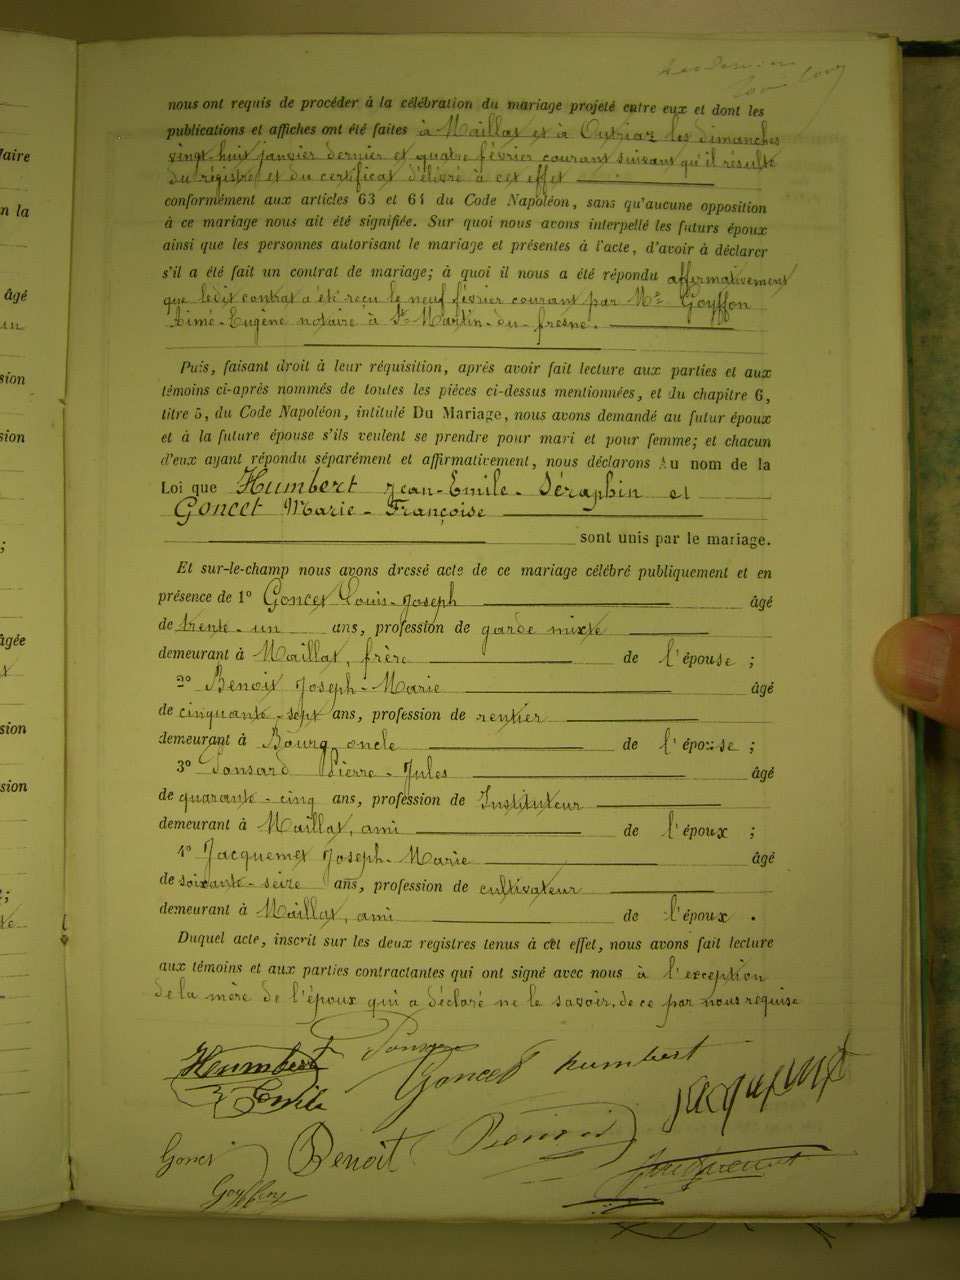 nous ont requis de procéder à la célébration du mariage projeté entre eux et dont les
publications et affiches ont été faites à Maillat et à Outriaz les dimanches
vingt-huit janvier dernier et quatre février courant suivant qu'il résulte
du régistre et du certificat délivré à cet effet
conformément aux articles 63 et 64 du Code Napoléon, sans qu'aucune opposition
à ce mariage nous ait été signifiée. Sur quoi nous avons interpellé les futurs époux
ainsi que les personnes autorisant le mariage et présentes à l'acte, d'avoir à déclarer
s'il a été fait un contrat de mariage; à quoi il nous a été répondu affirmativement
que ledit contrat a été reçu le neuf février courant par Me Goyffon
Aimé-Eugène notaire à St-Martin-du-fresne.
Puis, faisant droit à leur réquisition, après avoir fait lecture aux parties et aux
témoins ci-après nommés de toutes les pièces ci-dessus mentionnées, et du chapitre 6,
titre 5, du Code Napoléon, intitulé Du Mariage, nous avons demandé au futur époux
et à la future épouse s'ils veulent se prendre pour mari et pour femme; et chacun
d'eux ayant répondu séparément et affirmativement, nous déclarons Au nom de la
Loi que Humbert Jean-Emile-Séraphin et
Goncet Marie-Françoise
sont unis par le mariage.
Et sur-le-champ nous avons dressé acte de ce mariage célébré publiquement et en
présence de 1° Goncet Louis-Joseph âgé
de trente-un ans, profession de garde mixte
demeurant à Maillat, frère de l'épouse ;
2° Benoit Joseph-Marie âgé
de cinquante-sept ans, profession de rentier
demeurant à Bourg, oncle de l'épouse ;
3° Ponsard Pierre-Jules âgé
de quarante-cinq ans, profession de Instituteur
demeurant à Maillat, ami de l'époux ;
4° Jacquemet Joseph-Marie âgé
de soixante-seize ans, profession de cultivateur
demeurant à Maillat, ami de l'époux .
Duquel acte, inscrit sur les deux registres tenus à cet effet, nous avons fait lecture
aux témoins et aux parties contractantes qui ont signé avec nous à l'exception
de la mère de l'époux qui a déclaré ne le savoir, de ce par nous requise
Humbert Goncet humbert
Emile Jacquemet
Benoit
Goyffon Jacquemet